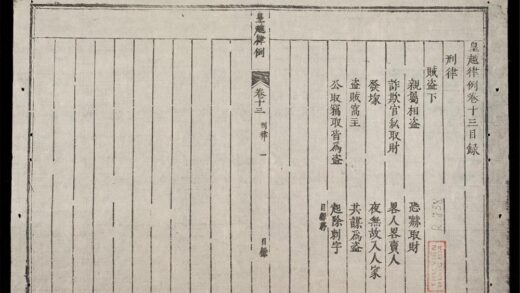 皇越律例卷十三目録
刑律
賊盗下
親屬相盗 恐嚇取財
詐欺官私取財 畧人畧賣人
發塚 夜無故入人家
盗賊窩主 共謀為盗
公取竊取皆為盗 起除刺字
目録終
皇越律例 卷十三 刑律 一 目録